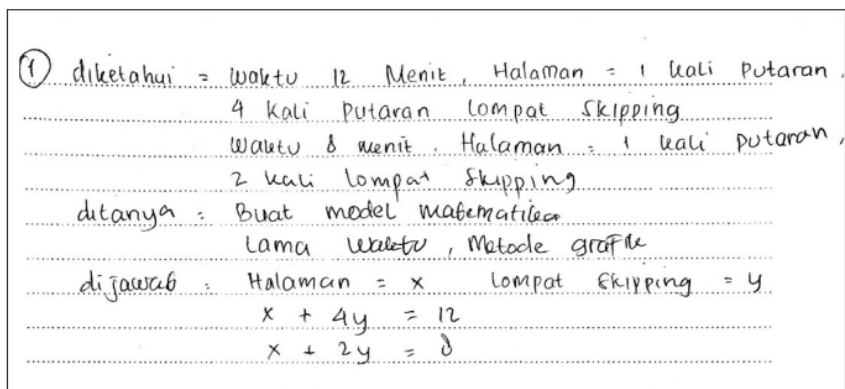 ① diketahui = waktu 12 Menit, Halaman = 1 kali Putaran,
4 kali Putaran lompat Skipping
Waktu 8 menit, Halaman = 1 kali putaran,
2 kali lompat Skipping
ditanya = Buat model matematika
Lama waktu, Metode grafik
dijawab : Halaman = x Lompat Skipping = y
x + 4y = 12
x + 2y = 8